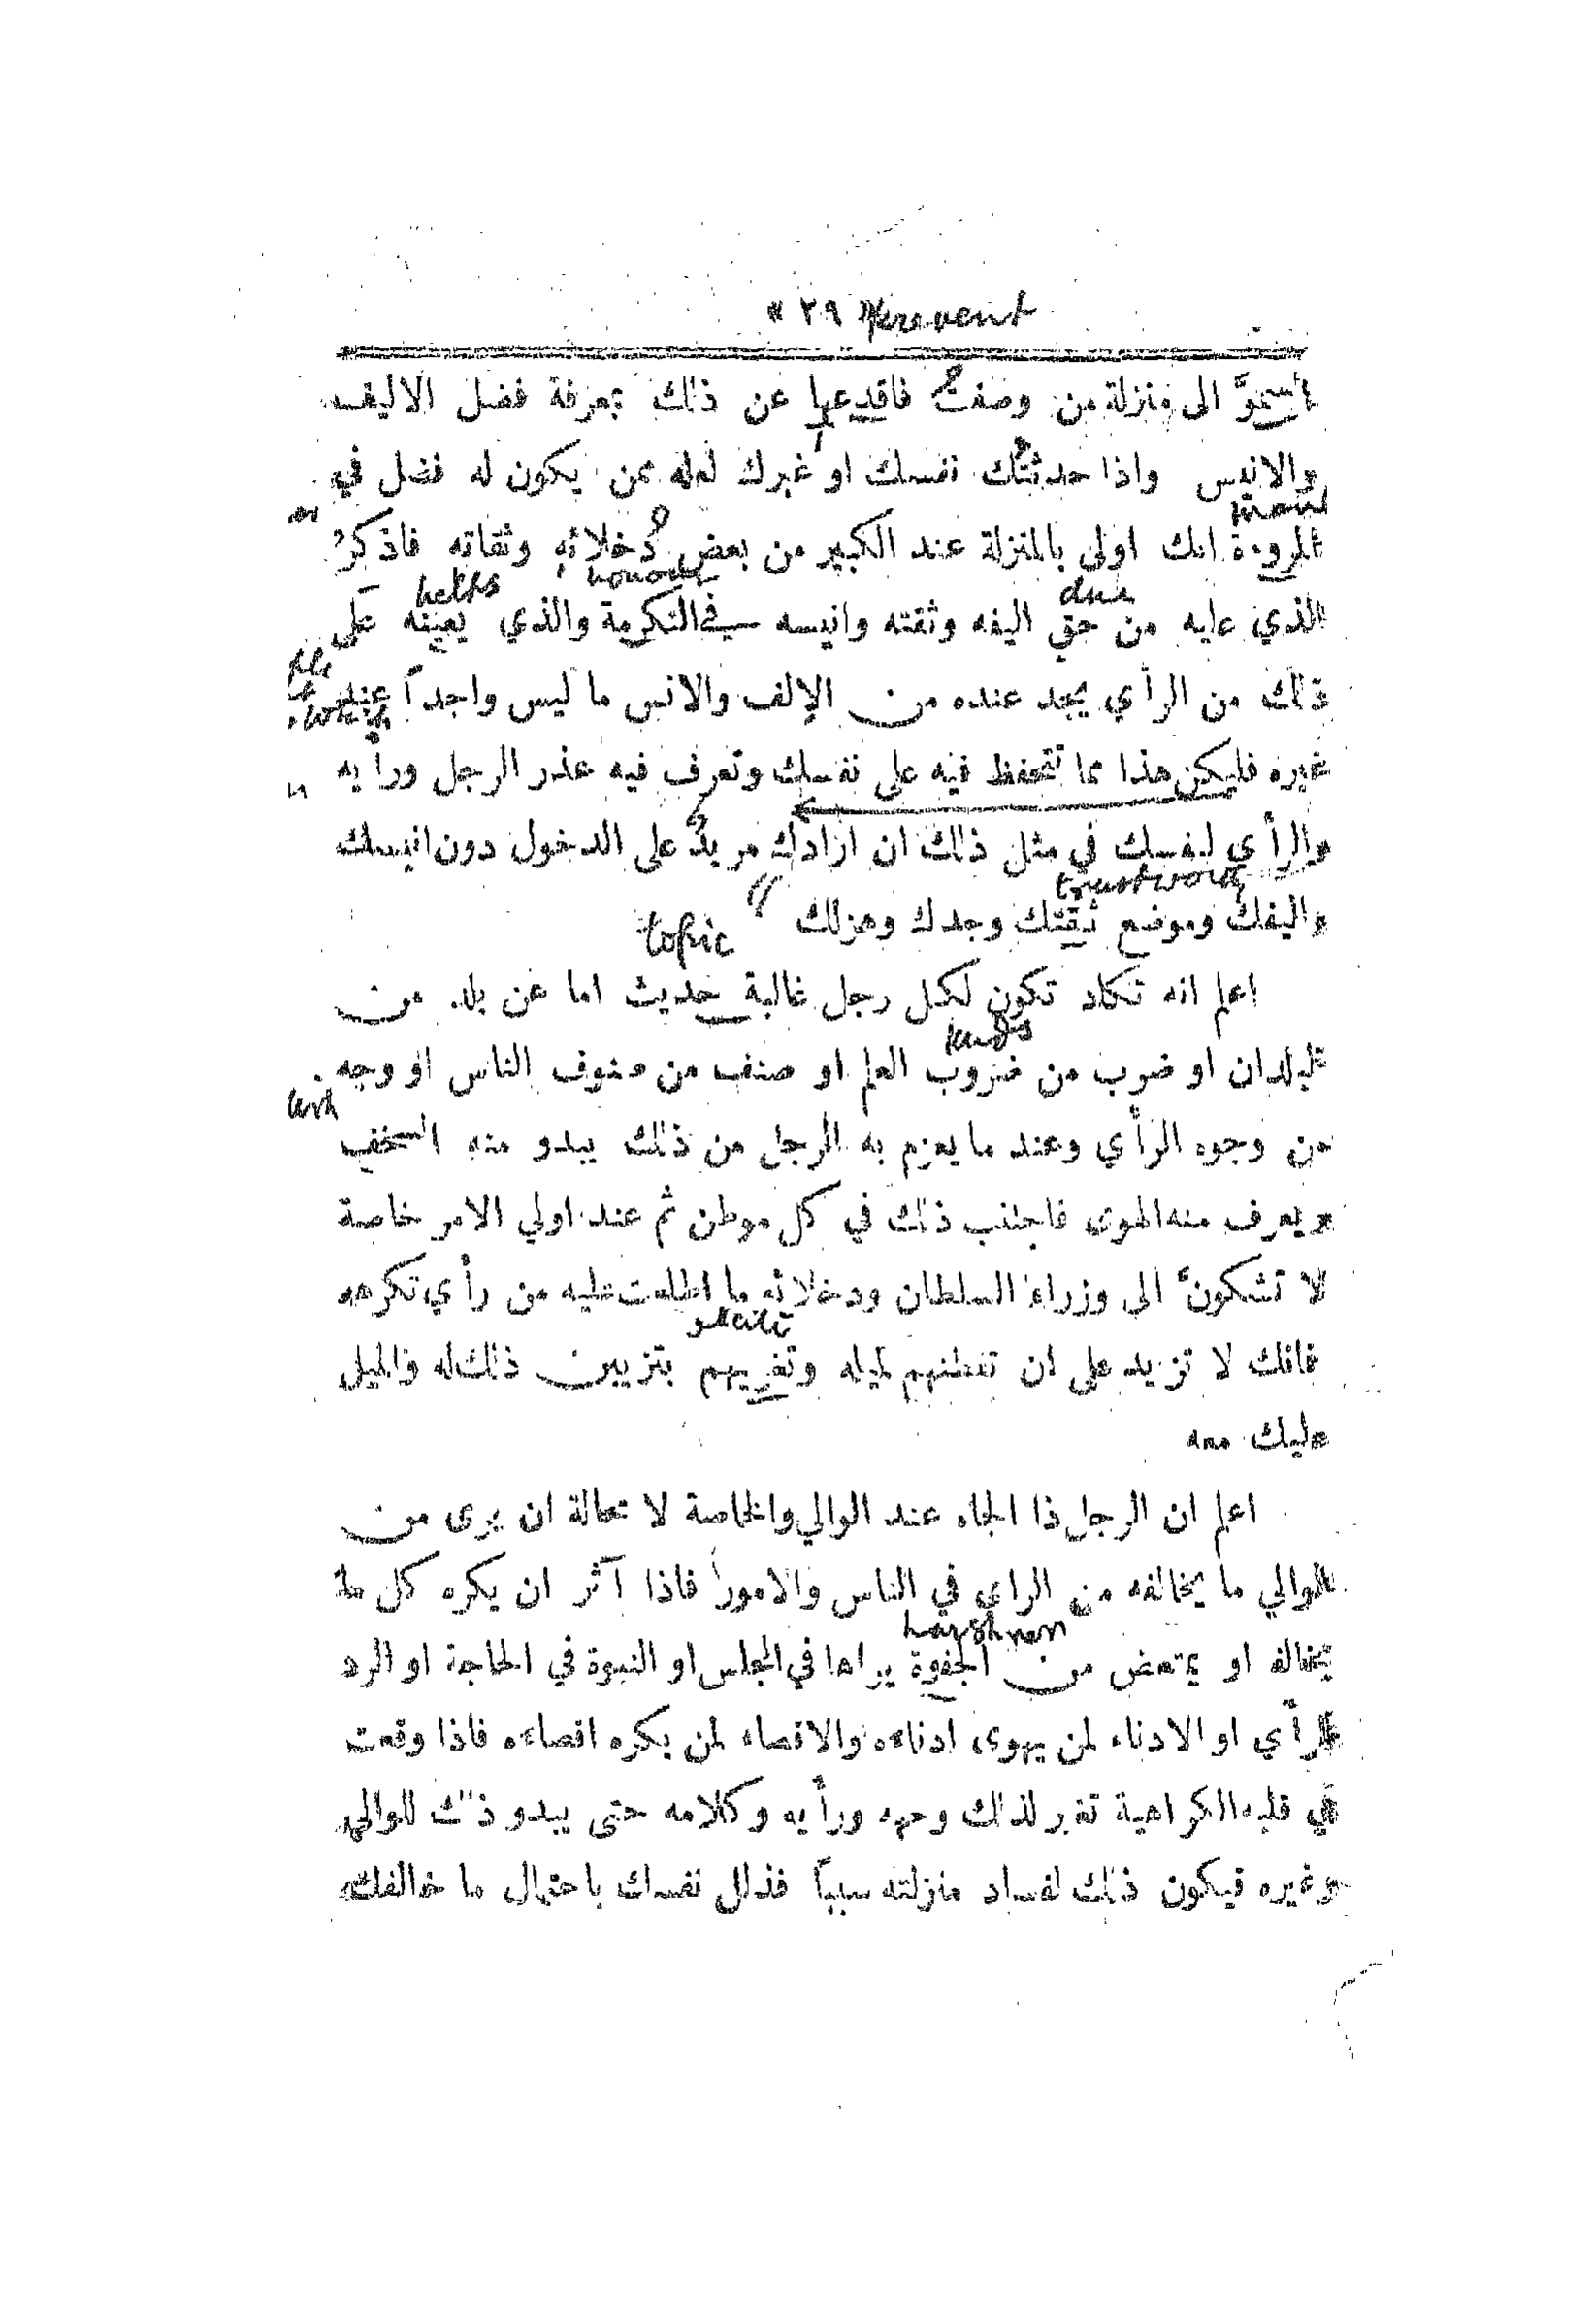 « ٢٩ » prevent
السموَّ الى منزلة من وصفتُ فاقدعها عن ذلك بمعرفة فضل الاليف
والانيس واذا حدثتك نفسك او غيرك لعله ممن يكون له فضل في
المروءة انك اولى بالمنزلة عند الكبير من بعض دُخلائه وثقاته فاذكر
helps honour due
الذي عليه من حق اليفه وثقته وانيسه في التكرمة والذي يعينه على
ذلك من الرأي يجد عنده من الإلف والانس ما ليس واجداً عند
غيره فليكن هذا مما تتحفظ فيه على نفسك وتعرف فيه عذر الرجل ورأيه
والرأي لنفسك في مثل ذلك ان ارادك مريدٌ على الدخول دون انيسك
واليفك وموضع ثقتك وجدك وهزلك
topic
اعلم انه تكاد تكون لكل رجل غالبة حديث اما عن بلد من
kinds
البلدان او ضرب من ضروب العلم او صنف من صنوف الناس او وجه
من وجوه الرأي وعند ما يعزم به الرجل من ذلك يبدو منه السخف
ويعرف منه الهوى فاجتنب ذلك في كل موطن ثم عند اولي الامر خاصة
لا تشكونَّ الى وزراء السلطان ودخلائه ما اطلعت عليه من رأي تكرهه
فانك لا تزيد على ان تفطنهم لميله وتغريهم بتزيين ذلك له والميل
عليك معه
اعلم ان الرجل ذا الجاه عند الوالي والخاصة لا محالة ان يرى من
الوالي ما يخالفه من الراي في الناس والامور فاذا آثر ان يكره كل ما
harshness
يخالفه او يمتعض من الجفوة يراها في المجلس او النبوة في الحاجة او الرد
للرأي او الادناء لمن يهوى ادناءه والاقصاء لمن يكره اقصاءه فاذا وقعت
في قلبه الكراهية تغير لذلك وجهه ورأيه وكلامه حتى يبدو ذلك للوالي
وغيره فيكون ذلك لفساد منزلته سبباً فذلل نفسك باحتمال ما خالفك